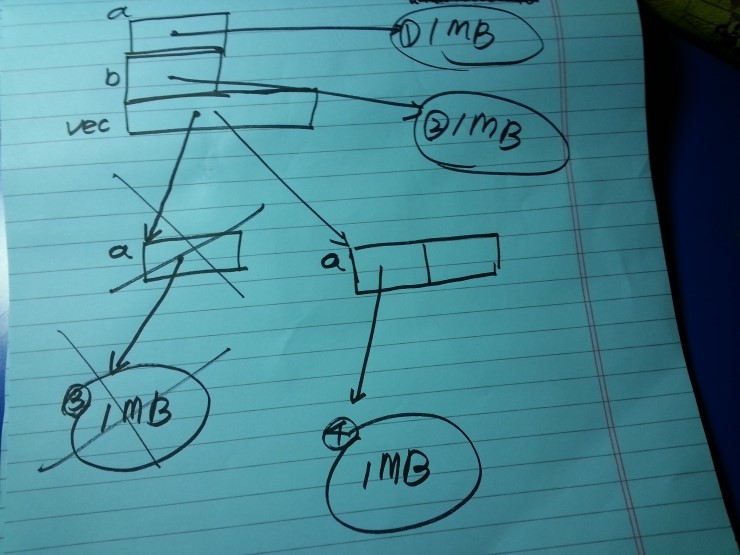 a
① 1MB
b
② 1MB
vec
a
a
③ 1MB
④ 1MB